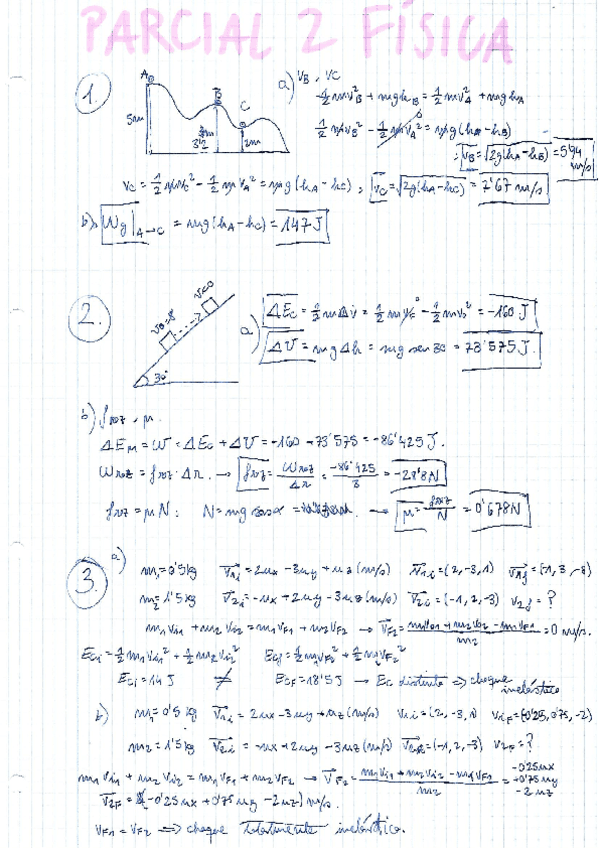 PARCIAL 2 FÍSICA
1.
A
B
C
5m
3m
2m
a) VB, VC
1/2 mv²B + mghB = 1/2 mv²A + mghA
1/2 mvB² - 1/2 mvA² = mg(hA-hB)
0
VB = √2g(hA-hB) = 5'94 m/s
VC = 1/2 mvC² - 1/2 mvA² = mg(hA-hC); VC = √2g(hA-hC) = 7'67 m/s
b) Wg|A→C = mg(hA-hC) = 147 J
2.
V0=8
V=0
30°
a) ΔEc = 1/2 mΔv = 1/2 mvf² - 1/2 mv0² = -160 J
ΔU = mgΔh = mg sen 30 = 73'575 J.
b) froz, μ.
ΔEM = W = ΔEc + ΔU = -160 + 73'575 = -86'425 J.
Wroz = froz·Δr. → froz = Wroz/Δr = -86'425/3 = -28'8N
froz = μN: N = mg cosα → μ = froz/N = 0'678N
3.
a) m1=0'5kg V1i = 2ux - 3uy + uz (m/s) V1i = (2,-3,1) V1f = (-1, 3, -8)
m2=1'5kg V2i = -ux + 2uy - 3uz (m/s) V2i = (-1, 2,-3) V2f = ?
m1Vi1 + m2Vi2 = m1VF1 + m2VF2 → VF2 = = 0 m/s.
Eci = 1/2 m1Vi1² + 1/2 m2Vi2² Ecf = 1/2 m1VF1² + 1/2 m2VF2²
Eci = 14 J ≠ EcF = 18'5 J → Ec distinta ⇒ choque inelástico
b) m1=0'5 kg V1i = 2ux - 3uy + uz (m/s) V1i = (2,-3,1) V1F = (-0'25, 0'75, -2)
m2=1'5kg V2i = -ux + 2uy - 3uz (m/s) V2i = (-1, 2,-3) V2F = ?
m1Vi1 + m2Vi2 = m1VF1 + m2VF2 → VF2 = m1Vi1 + m2Vi2 - m1VF1/m2 = -0'25ux + 0'75uy - 2uz
V2F = (-0'25ux + 0'75uy - 2uz) m/s.
VF1 = VF2 ⇒ choque totalmente inelástico.